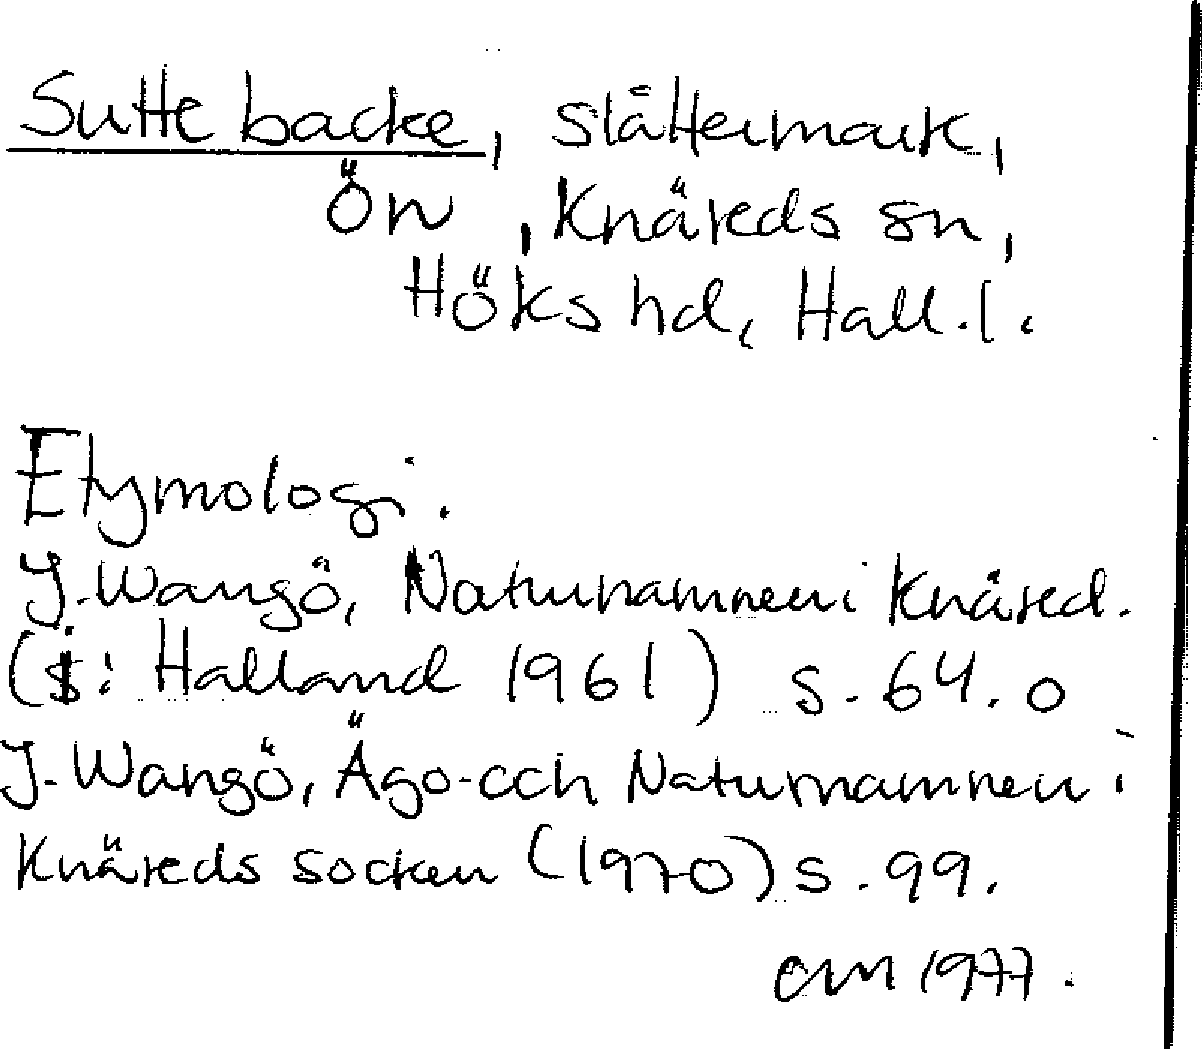 Sutte backe, slåttermark,
Ön , Knäreds sn,
Höks hd, Hall. l.
Etymologi.
J. Wangö, Naturnamnen i Knäred.
(i: Halland 1961) s. 64. o
J. Wangö, Ägo- och Naturnamnen i
Knäreds socken (1970) s. 99.
CMM 1977.